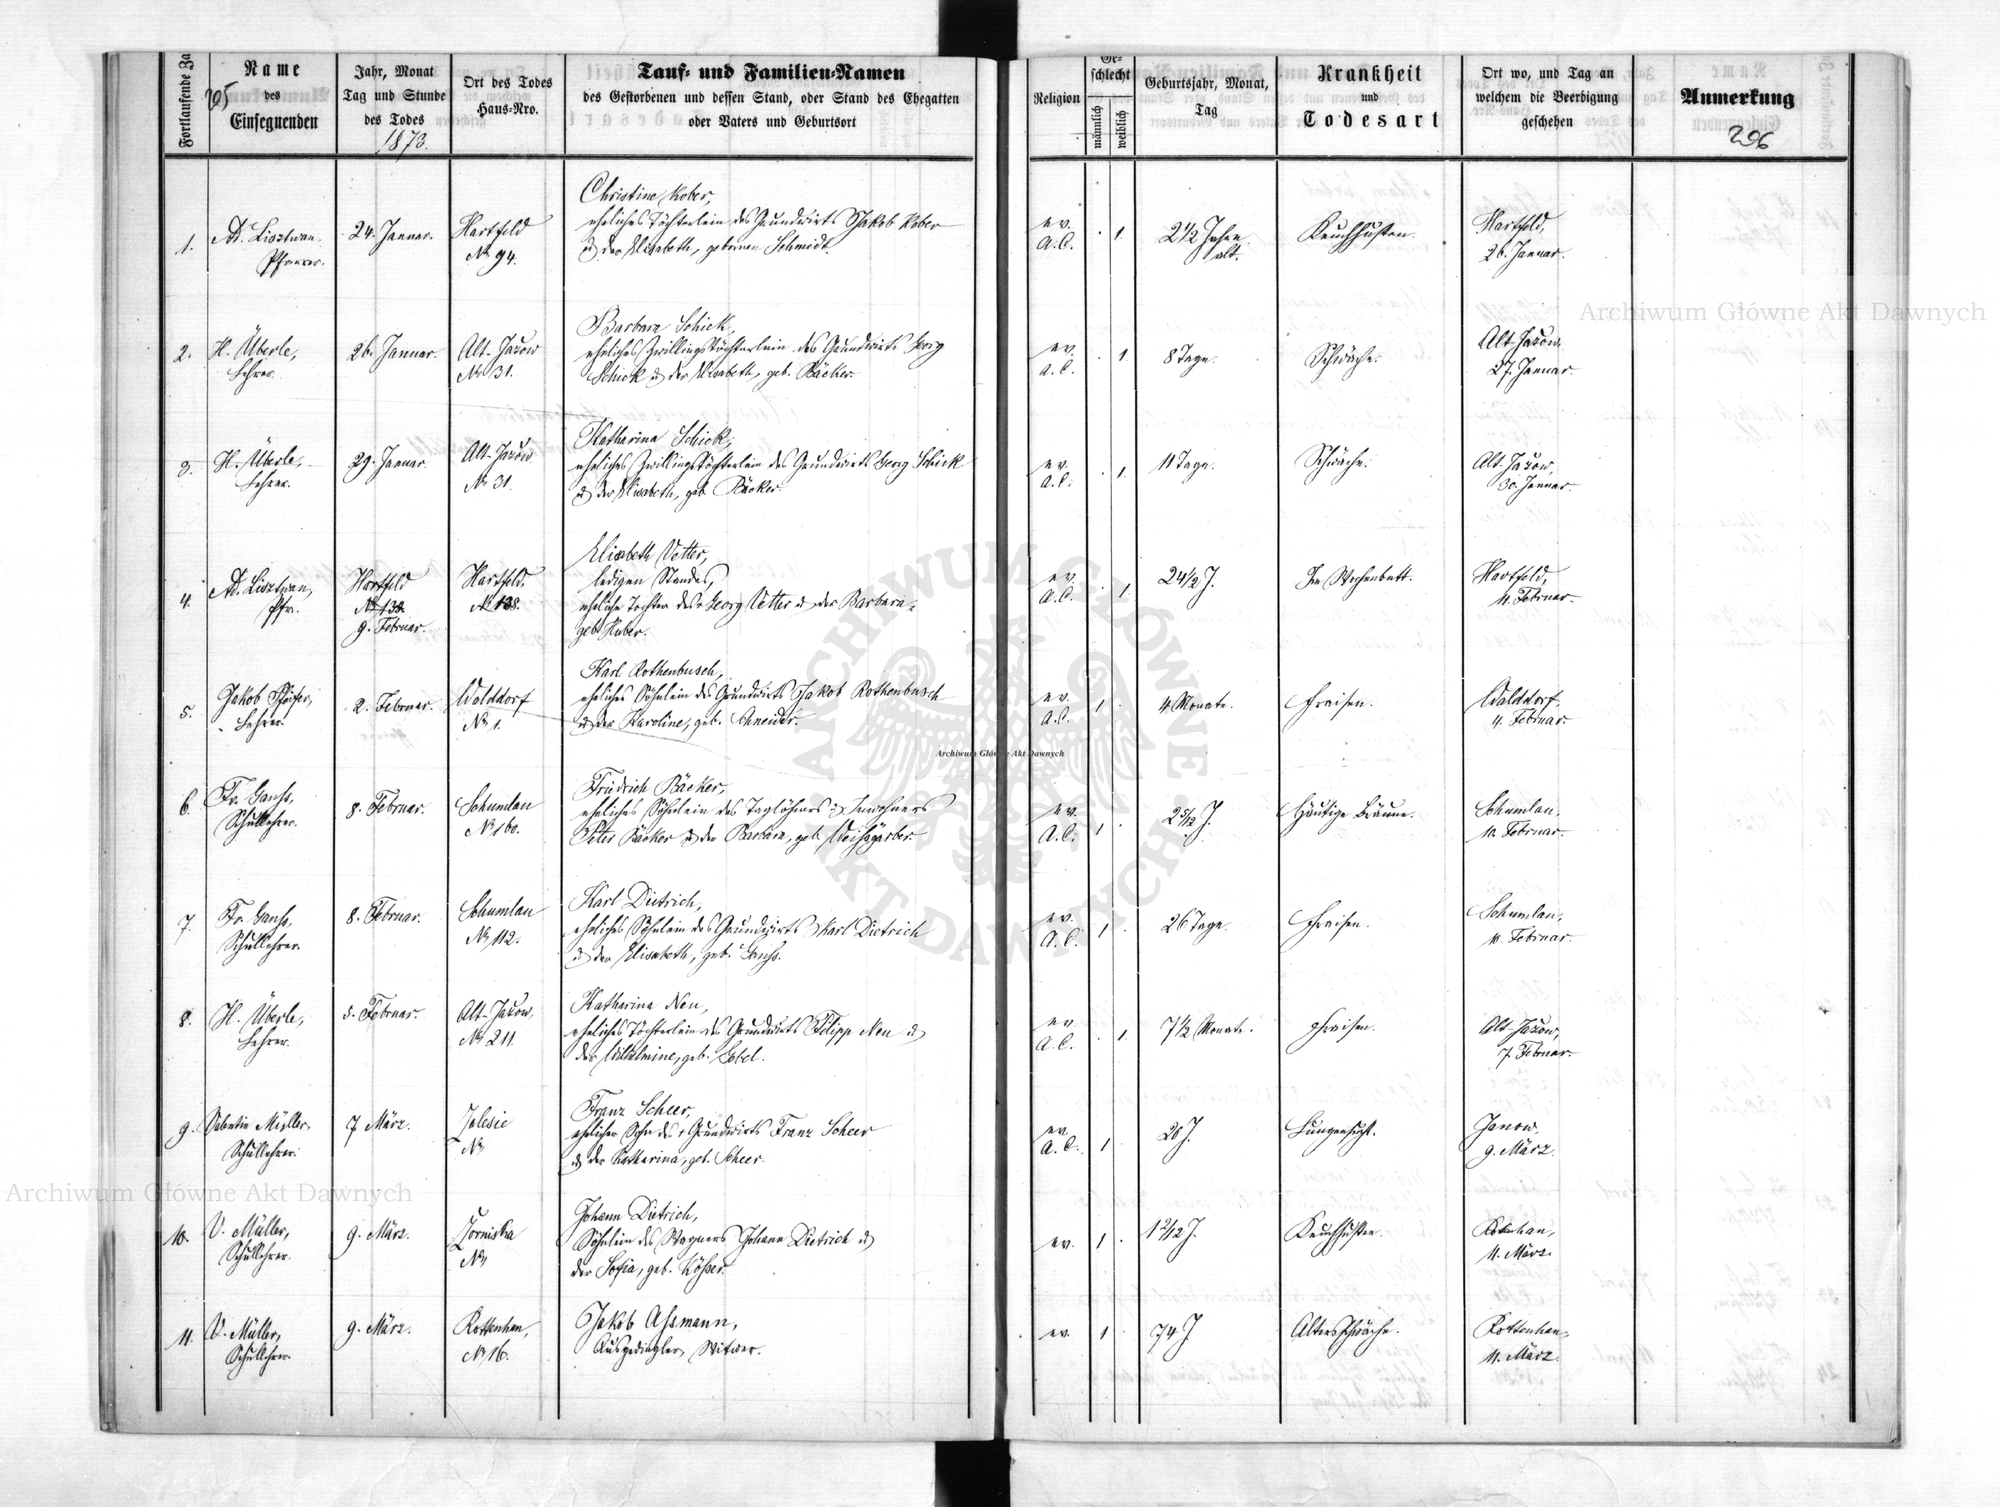 Fortlaufende Za
205
Name
des
Einsegnenden
Jahr, Monat
Tag und Stunde
des Todes
1873.
Ort des Todes
Haus-Nro.
Tauf- und Familien-Namen
des Gestorbenen und dessen Stand, oder Stand des Ehegatten
oder Vaters und Geburtsort
Religion
Ge-
schlecht
männlich
weiblich
Geburtsjahr, Monat,
Tag
Krankheit
und
Todesart
Ort wo, und Tag an
welchem die Beerdigung
geschehen
Anmerkung
206
1.
Ad. Lisztwan,
Pfarrer.
24. Januar.
Hartfeld
No 94.
Christine Kober,
eheliches Töchterlein des Grundwirts Jakob Kober
u der Elisabeth, gebornen Schmidt.
ev.
A.C.
1.
2 1/2 Jahre
alt.
Keuchhusten.
Hartfeld,
26. Januar.
2.
H. Überle,
Lehrer.
26. Januar.
Alt-Jazow
No 31.
Barbara Schick,
eheliches Zwillingstöchterlein des Grundwirts Georg
Schick u der Elisabeth, geb. Bäcker.
ev.
A.C.
1.
8 Tage.
Schwäche.
Alt Jazow,
27. Januar.
3.
H. Überle,
Lehrer.
29. Januar.
Alt-Jazow
No 31.
Katharina Schick,
eheliches Zwillingstöchterlein des Grundwirts Georg Schick
u der Elisabeth, geb. Bäcker.
ev.
A.C.
1.
11 Tage.
Schwäche.
Alt-Jazow,
30. Januar.
4.
Ad. Lisztwan,
Pfr.
Hartfeld
No 138.
9. Februar.
Hartfeld.
No 138.
Elisabeth Vetter,
ledigen Standes,
eheliche Tochter des Georg Vetter u der Barbara,
geb. Huber.
ev.
A.C.
1.
24 1/2 J.
Im Wochenbett.
Hartfeld,
11. Februar.
5.
Jakob Pfeifer,
Lehrer.
2. Februar.
Walddorf
No 1.
Karl Rothenbusch,
eheliches Söhnlein des Grundwirts Jakob Rothenbusch
u der Karoline, geb. Schneider.
ev.
A.C.
1.
4 Monate.
Fraisen.
Walddorf,
4. Februar.
6.
Fr. Ganss,
Schullehrer.
8. Februar.
Schumlau
No 160.
Friedrich Bäcker,
eheliches Söhnlein des Taglöhners u Inwohners
Peter Bäcker u der Barbara, geb. Weissgärber.
ev.
A.C.
1
2 5/12 J.
Häutige Bräune.
Schumlau,
10. Februar.
7.
Fr. Ganss,
Schullehrer.
8. Februar.
Schumlau
No 112.
Karl Dietrich,
eheliches Söhnlein des Grundwirts Karl Dietrich
u der Elisabeth, geb. Ganss.
ev.
A.C.
1
26 Tage.
Fraisen.
Schumlau,
10. Februar.
8.
H. Überle,
Lehrer.
5. Februar.
Alt-Jazow,
No 211.
Katharina Neu,
eheliches Töchterlein des Grundwirts Filipp Neu u
der Wilhelmine, geb. Gebel.
ev.
A.C.
1.
7 1/2 Monate.
Fraisen.
Alt-Jazow,
7. Februar.
9.
Valentin Müller,
Schullehrer.
7 März.
Zalesie
No
Franz Scheer,
ehelicher Sohn des Grundwirts Franz Scheer
u der Katharina, geb. Scheer.
ev.
A.C.
1
20 J.
Lungensucht.
Janow,
9. März.
10.
V. Müller,
Schullehrer.
9. März.
Zorniska
No
Johann Dietrich,
Söhnlein des Wagners Johann Dietrich u
der Sofia, geb. Kösser.
ev.
1
1 2/12 J.
Keuchhusten.
Rotenhan,
11. März.
11.
V. Müller,
Schullehrer.
9. März.
Rottenhan,
No 16.
Jakob Assmann,
Ausgedingler, Witwer.
ev.
1
74 J
Altersschwäche.
Rottenhan,
11. März.
Archiwum Główne Akt Dawnych
Archiwum Główne Akt Dawnych
Archiwum Główne Akt Dawnych
ARCHIWUM GŁÓWNE AKT DAWNYCH